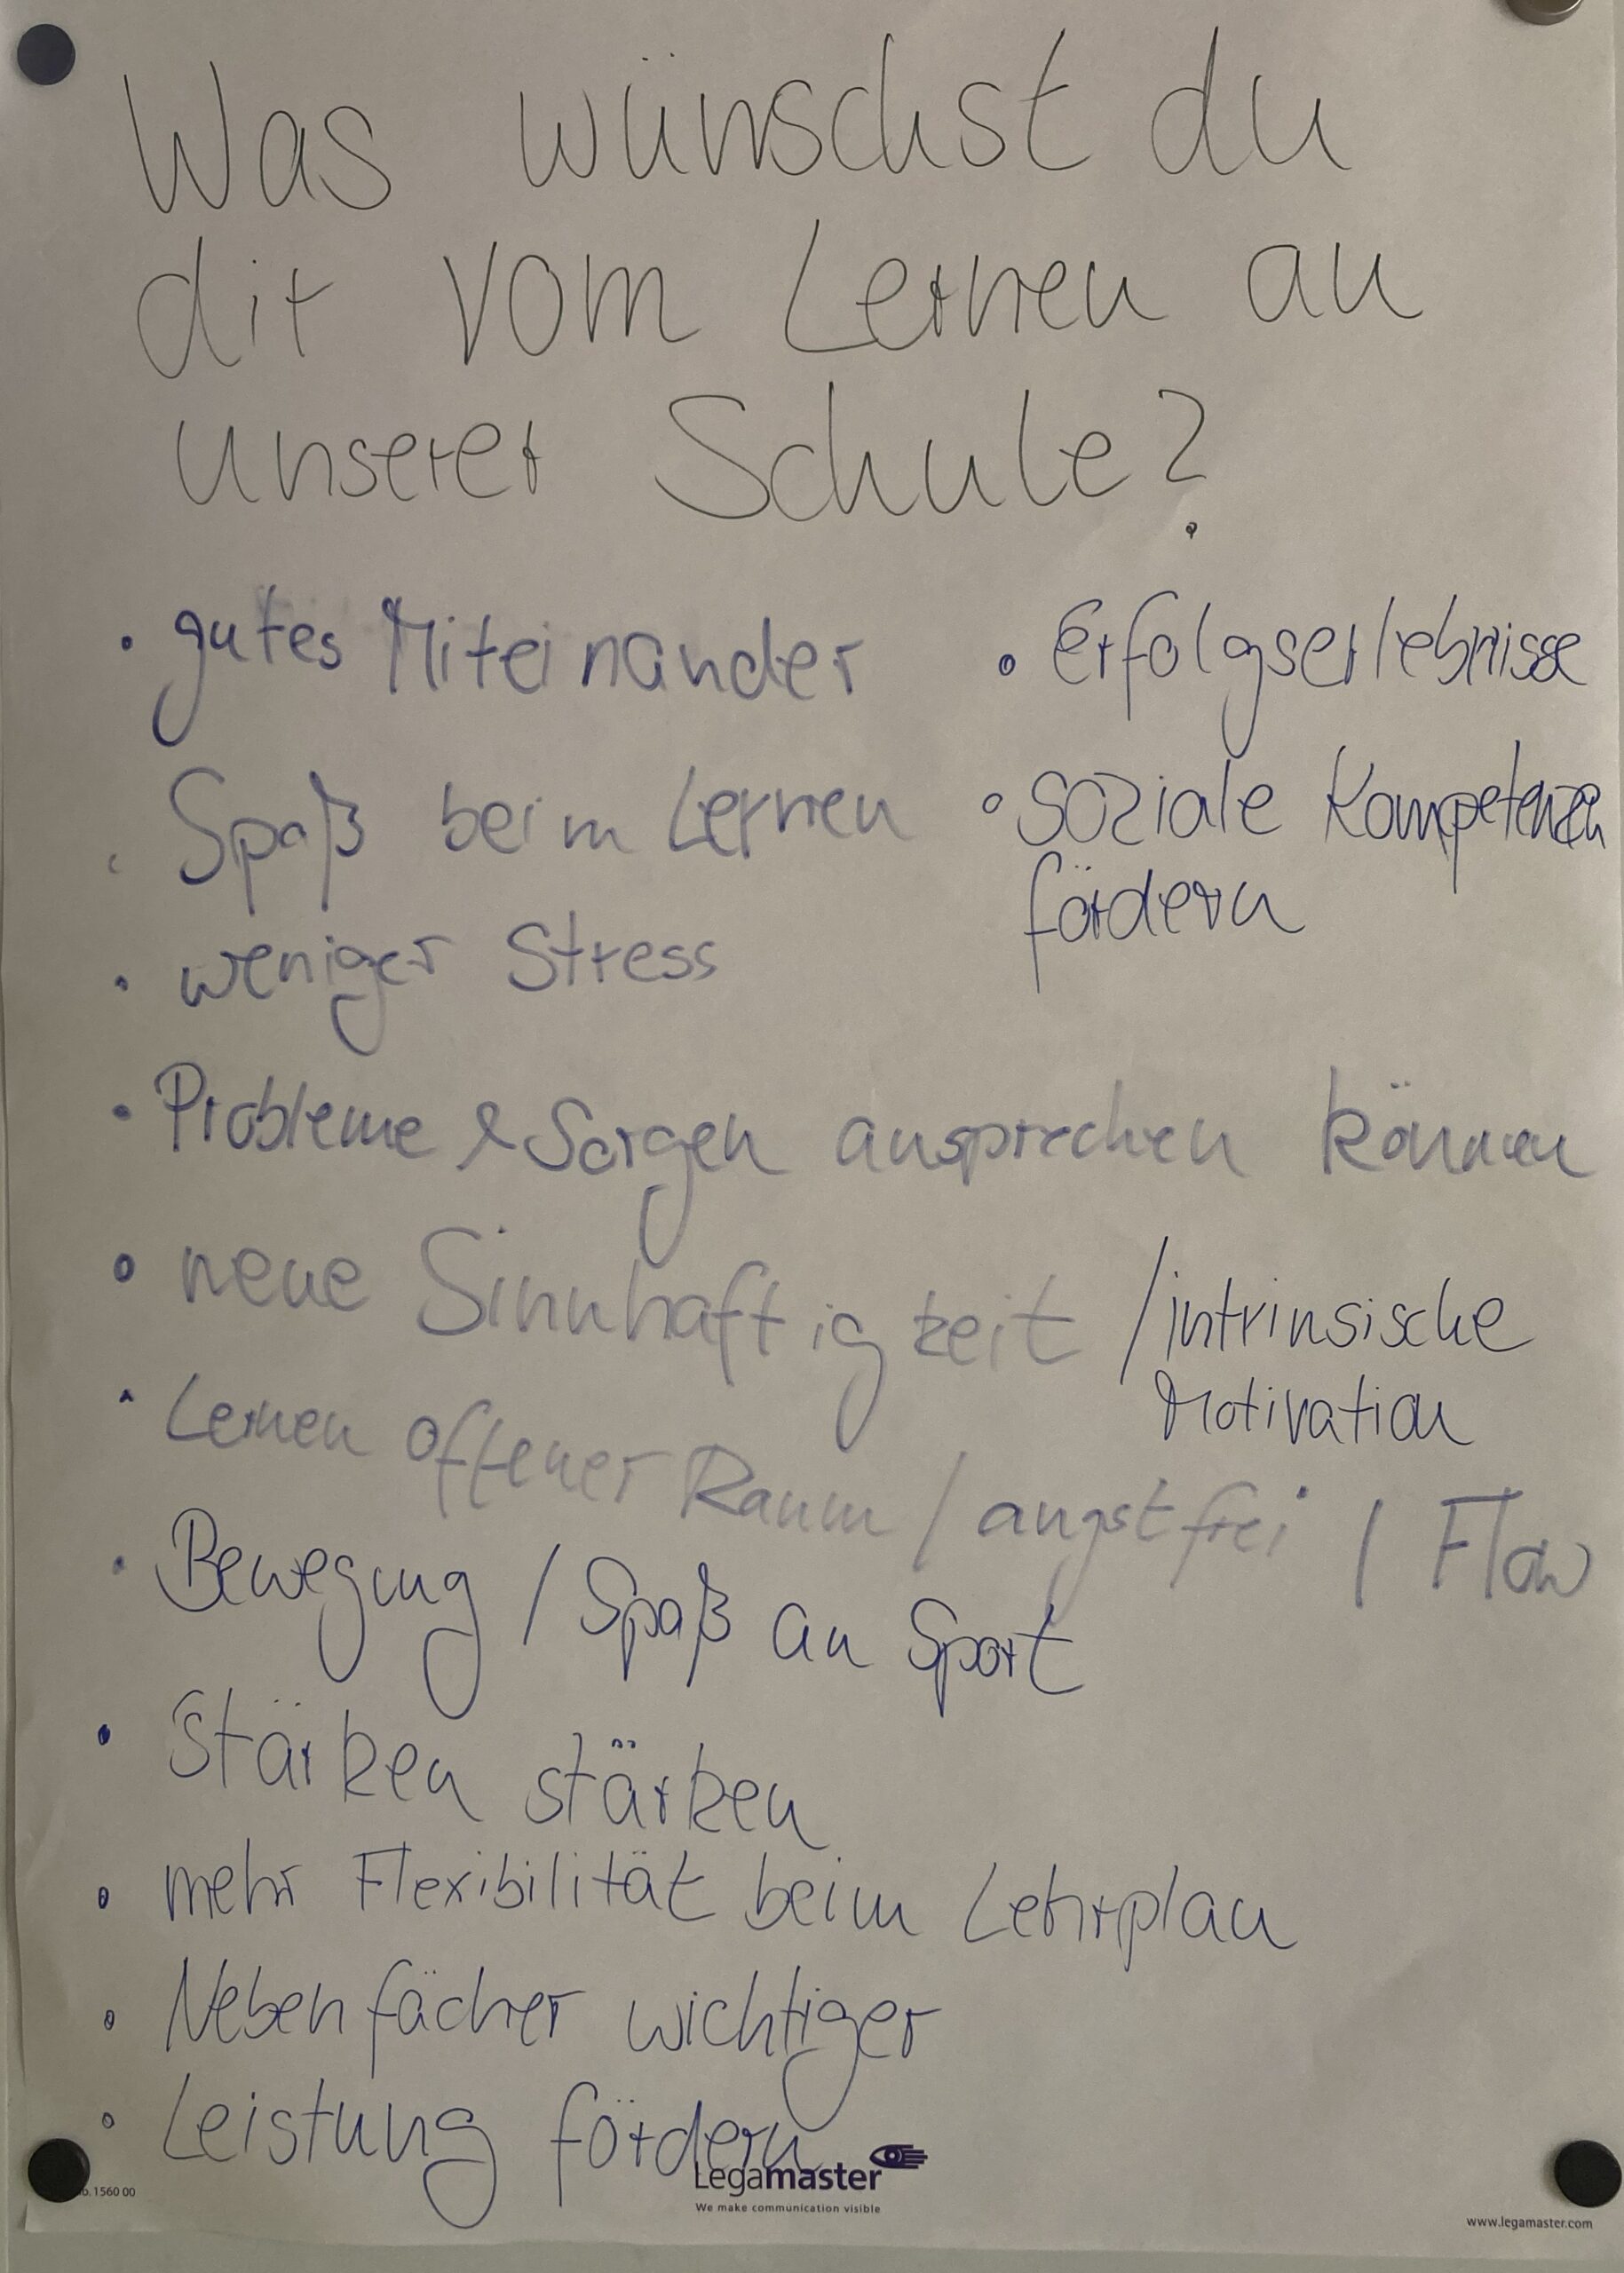 Was wünschst du
dir vom Lernen an
unserer Schule?
• gutes Miteinander
• Spaß beim Lernen
• weniger Stress
• Erfolgserlebnisse
• soziale Kompetenzen
fördern
• Probleme & Sorgen ansprechen können
• neue Sinnhaftigkeit / intrinsische
Motivation
• Lernen offener Raum / angstfrei / Flow
• Bewegung / Spaß an Sport
• Stärken stärken
• mehr Flexibilität beim Lehrplan
• Nebenfächer wichtiger
• Leistung fördern
Legamaster
We make communication visible
1560 00
www.legamaster.com